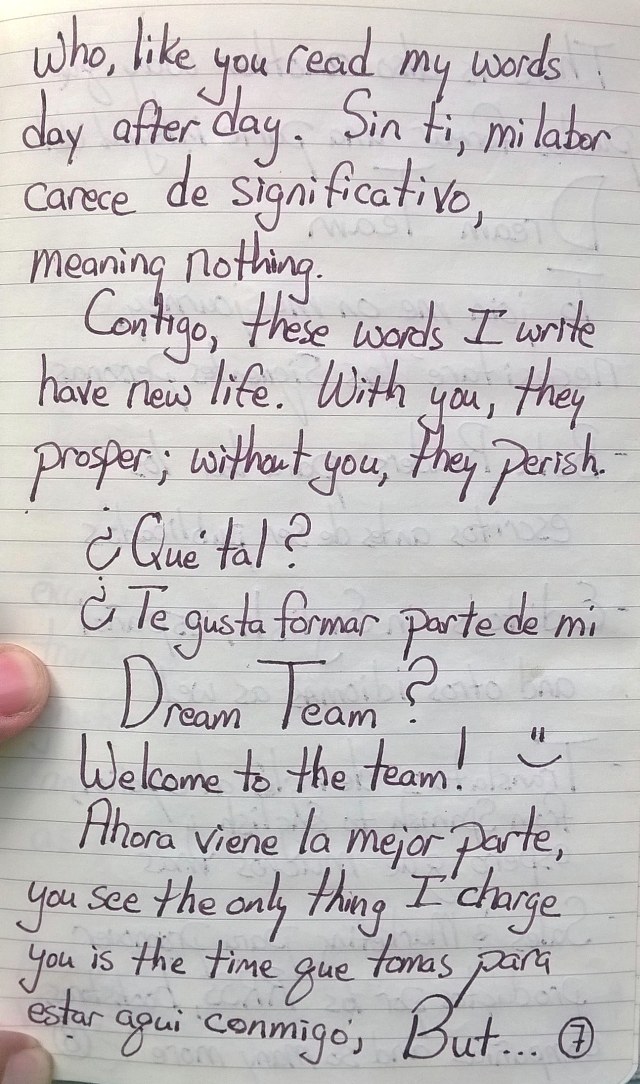 Who, like you read my words
day after day. Sin ti, mi labor
carece de significativo,
meaning nothing.
Contigo, these words I write
have new life. With you, they
prosper; without you, they perish.
¿Qué tal?
¿Te gusta formar parte de mi
Dream Team?
Welcome to the team! "‿
Ahora viene la mejor parte,
you see the only thing I charge
you is the time que tomas para
estar aqui conmigo, But... ⑦